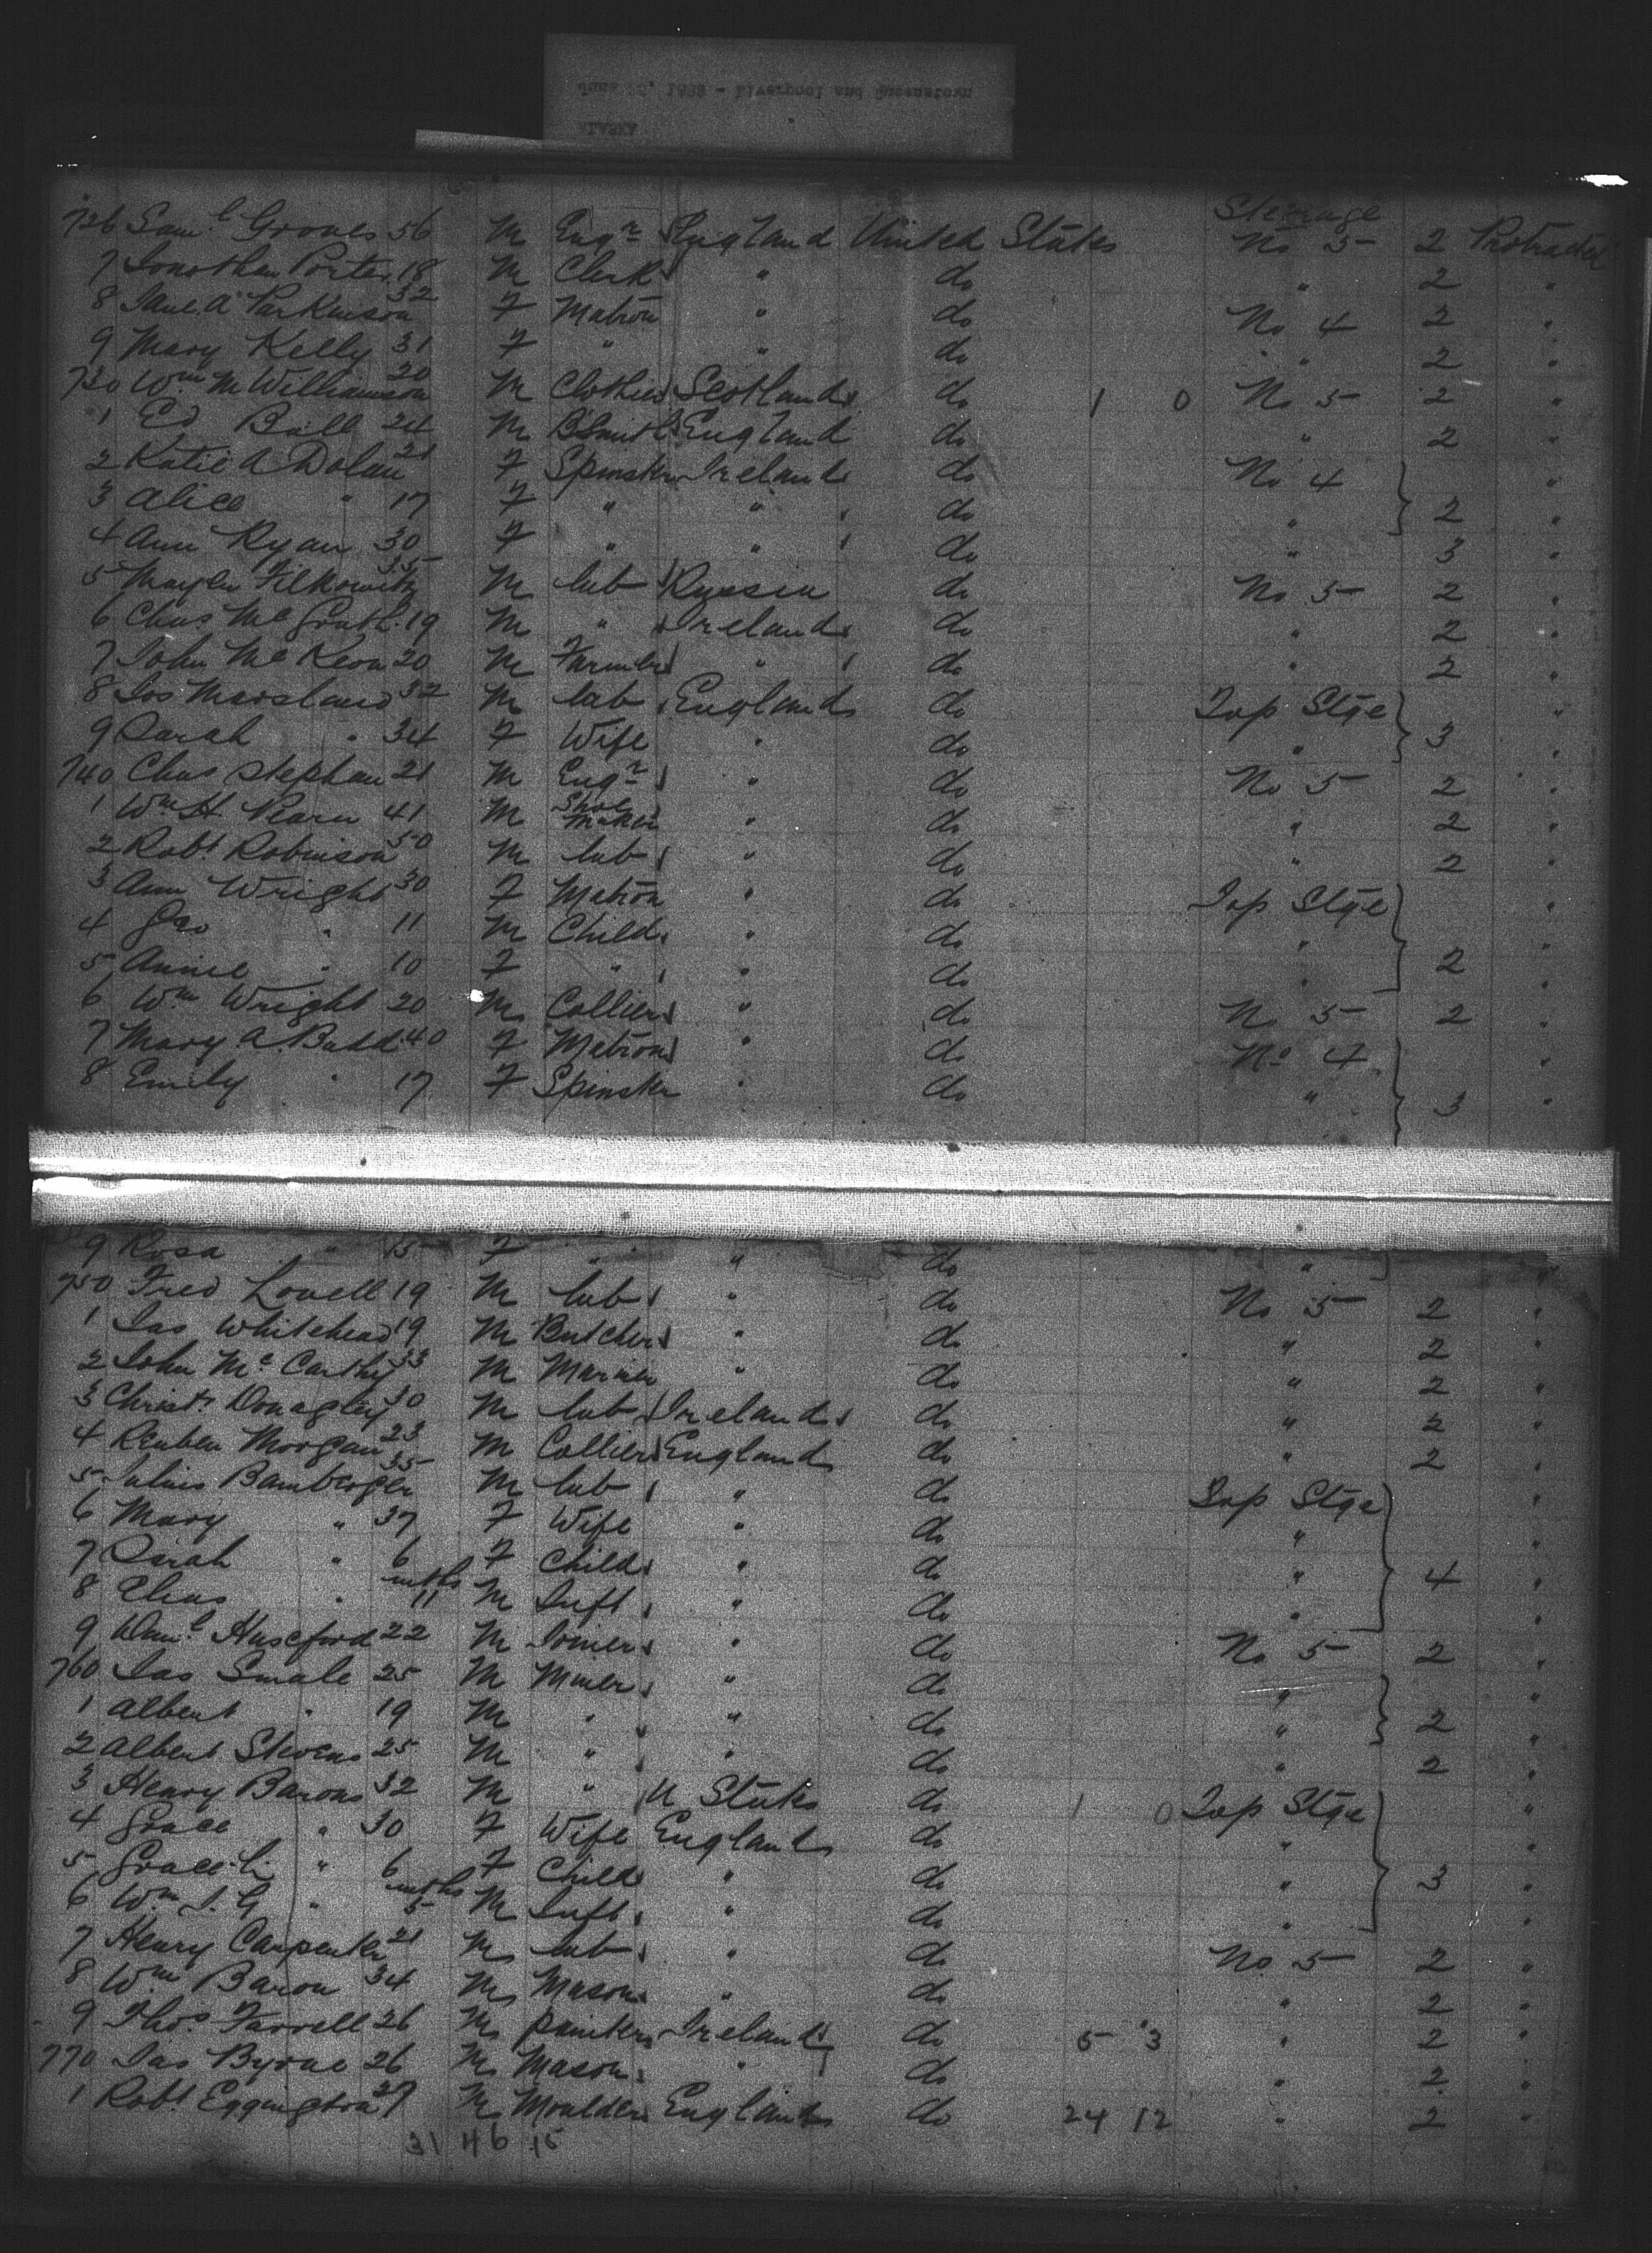 ALASKA
1888 - Liverpool and Queenstown
Steerage
726 Saml Groves 56 M Engr England United States No 5 2 Protracted
7 Jonathan Porter 18 M Clerk " do " 2 "
8 Jane A Parkinson 32 F Matron " do No 4 2 "
9 Mary Kelly 31 F " " do " 2 "
730 Wm M Williamson 20 M Clothier Scotland do 1 0 No 5 2 "
1 Ed Ball 24 M BSmith England do " 2 "
2 Katie A Dolan 21 F Spinster Ireland do No 4 "
3 Alice " 17 F " " do " 2 "
4 Ann Ryan 30 F " " do " 3 "
5 Filkowitz 35 M Lab Russia do No 5 2 "
6 Chas McGrath 19 M " Ireland do " 2 "
7 John McKeon 20 M Farmer " do " 2 "
8 Jos Marsland 32 M Lab England do Top Stge "
9 Sarah " 34 F Wife " do " 3 "
740 Chas Stephan 21 M Engr " do No 5 2 "
1 Wm H Pearn 41 M Shoe Maker " do " 2 "
2 Robt Robinson 50 M Lab " do " 2 "
3 Ann Wright 30 F Matron " do Top Stge "
4 Geo " 11 M Child " do " "
5 Annie " 10 F " " do " 2 "
6 Wm Wright 20 M Collier " do No 5 2 "
7 Mary A. Budd 40 F Matron " do No 4 "
8 Emily " 17 F Spinster " do " 3 "
9 Rosa " 15 F " " do " "
750 Fred Lovell 19 M Lab " do No 5 2 "
1 Jas Whitehead 19 M Butcher " do " 2 "
2 John McCarthy 33 M Mariner " do " 2 "
3 Christr Donagley 30 M Lab Ireland do " 2 "
4 Reuben Morgan 23 M Collier England do " 2 "
5 Julius Bamberger 35 M Lab " do Top Stge "
6 Mary " 37 F Wife " do " "
7 Sarah " 6 F Child " do " 4 "
8 Elias " mths 11 M Inft " do " "
9 Danl Huseford 22 M Joiner " do No 5 2 "
760 Jas Smale 25 M Miner " do " "
1 Albert " 19 M " " do " 2 "
2 Albert Stevens 25 M " " do " 2 "
3 Henry Barons 32 M " U States do 1 0 Top Stge "
4 Grace " 30 F Wife England do " "
5 Grace L " 6 F Child " do " 3 "
6 Wm J. G " mths 5 M Inft " do " "
7 Henry Carpenter 21 M Lab " do No 5 2 "
8 Wm Baron 34 M Mason " do " 2 "
9 Thos Farrell 26 M Painter Ireland do 5 3 " 2 "
770 Jas Byrne 26 M Mason " do " 2 "
1 Robt Eggington 27 M Moulder England do 24 12 " 2 "
31 46 15